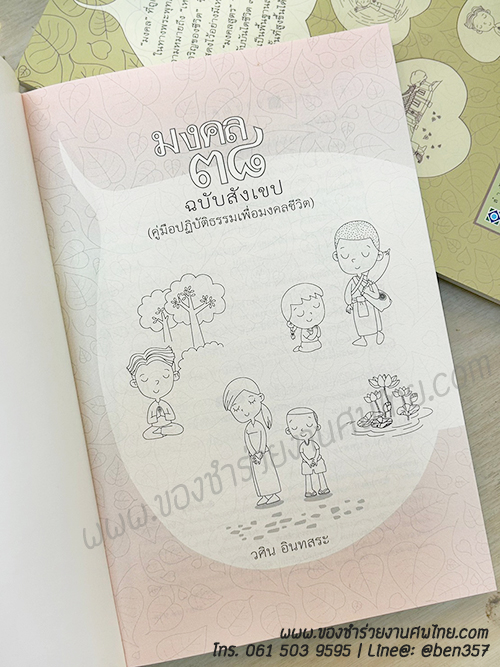 มงคล
๓๘
ฉบับสังเขป
(คู่มือปฏิบัติธรรมเพื่อมงคลชีวิต)
www.ของชำร่วยงานศพไทย.com
www.ของชำร่วยงานศพไทย.com
วศิน อินทสระ
www.ของชำร่วยงานศพไทย.com
โทร. 061 503 9595 | LIne@: @ben357